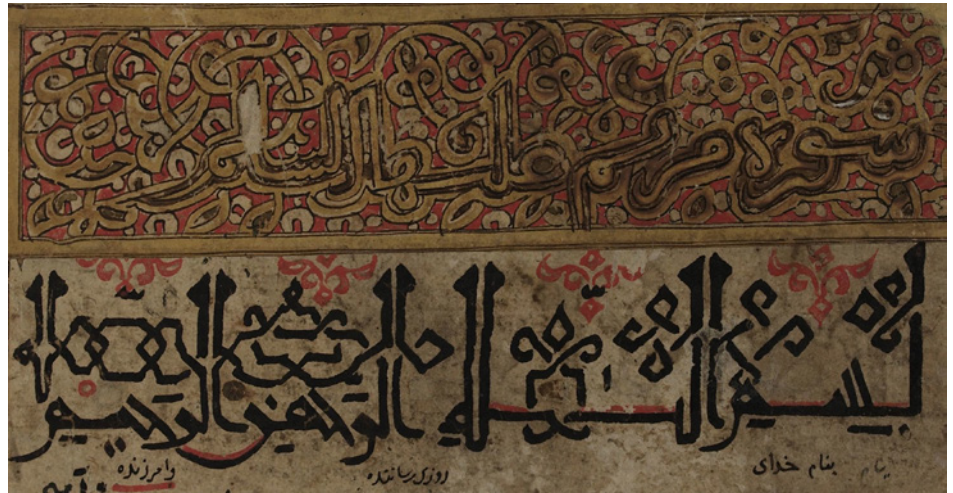 سورة مريم عليها السلام
بسم الله الرحمن الرحيم
بنام خدای روزی رساننده وامرزنده